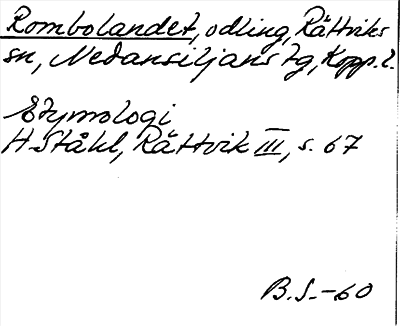 Rombolandet, odling, Rättviks
sn, Nedansiljans tg, Kopp. l.
Etymologi
H. Ståhl, Rättvik III, s. 67
B.S.-60